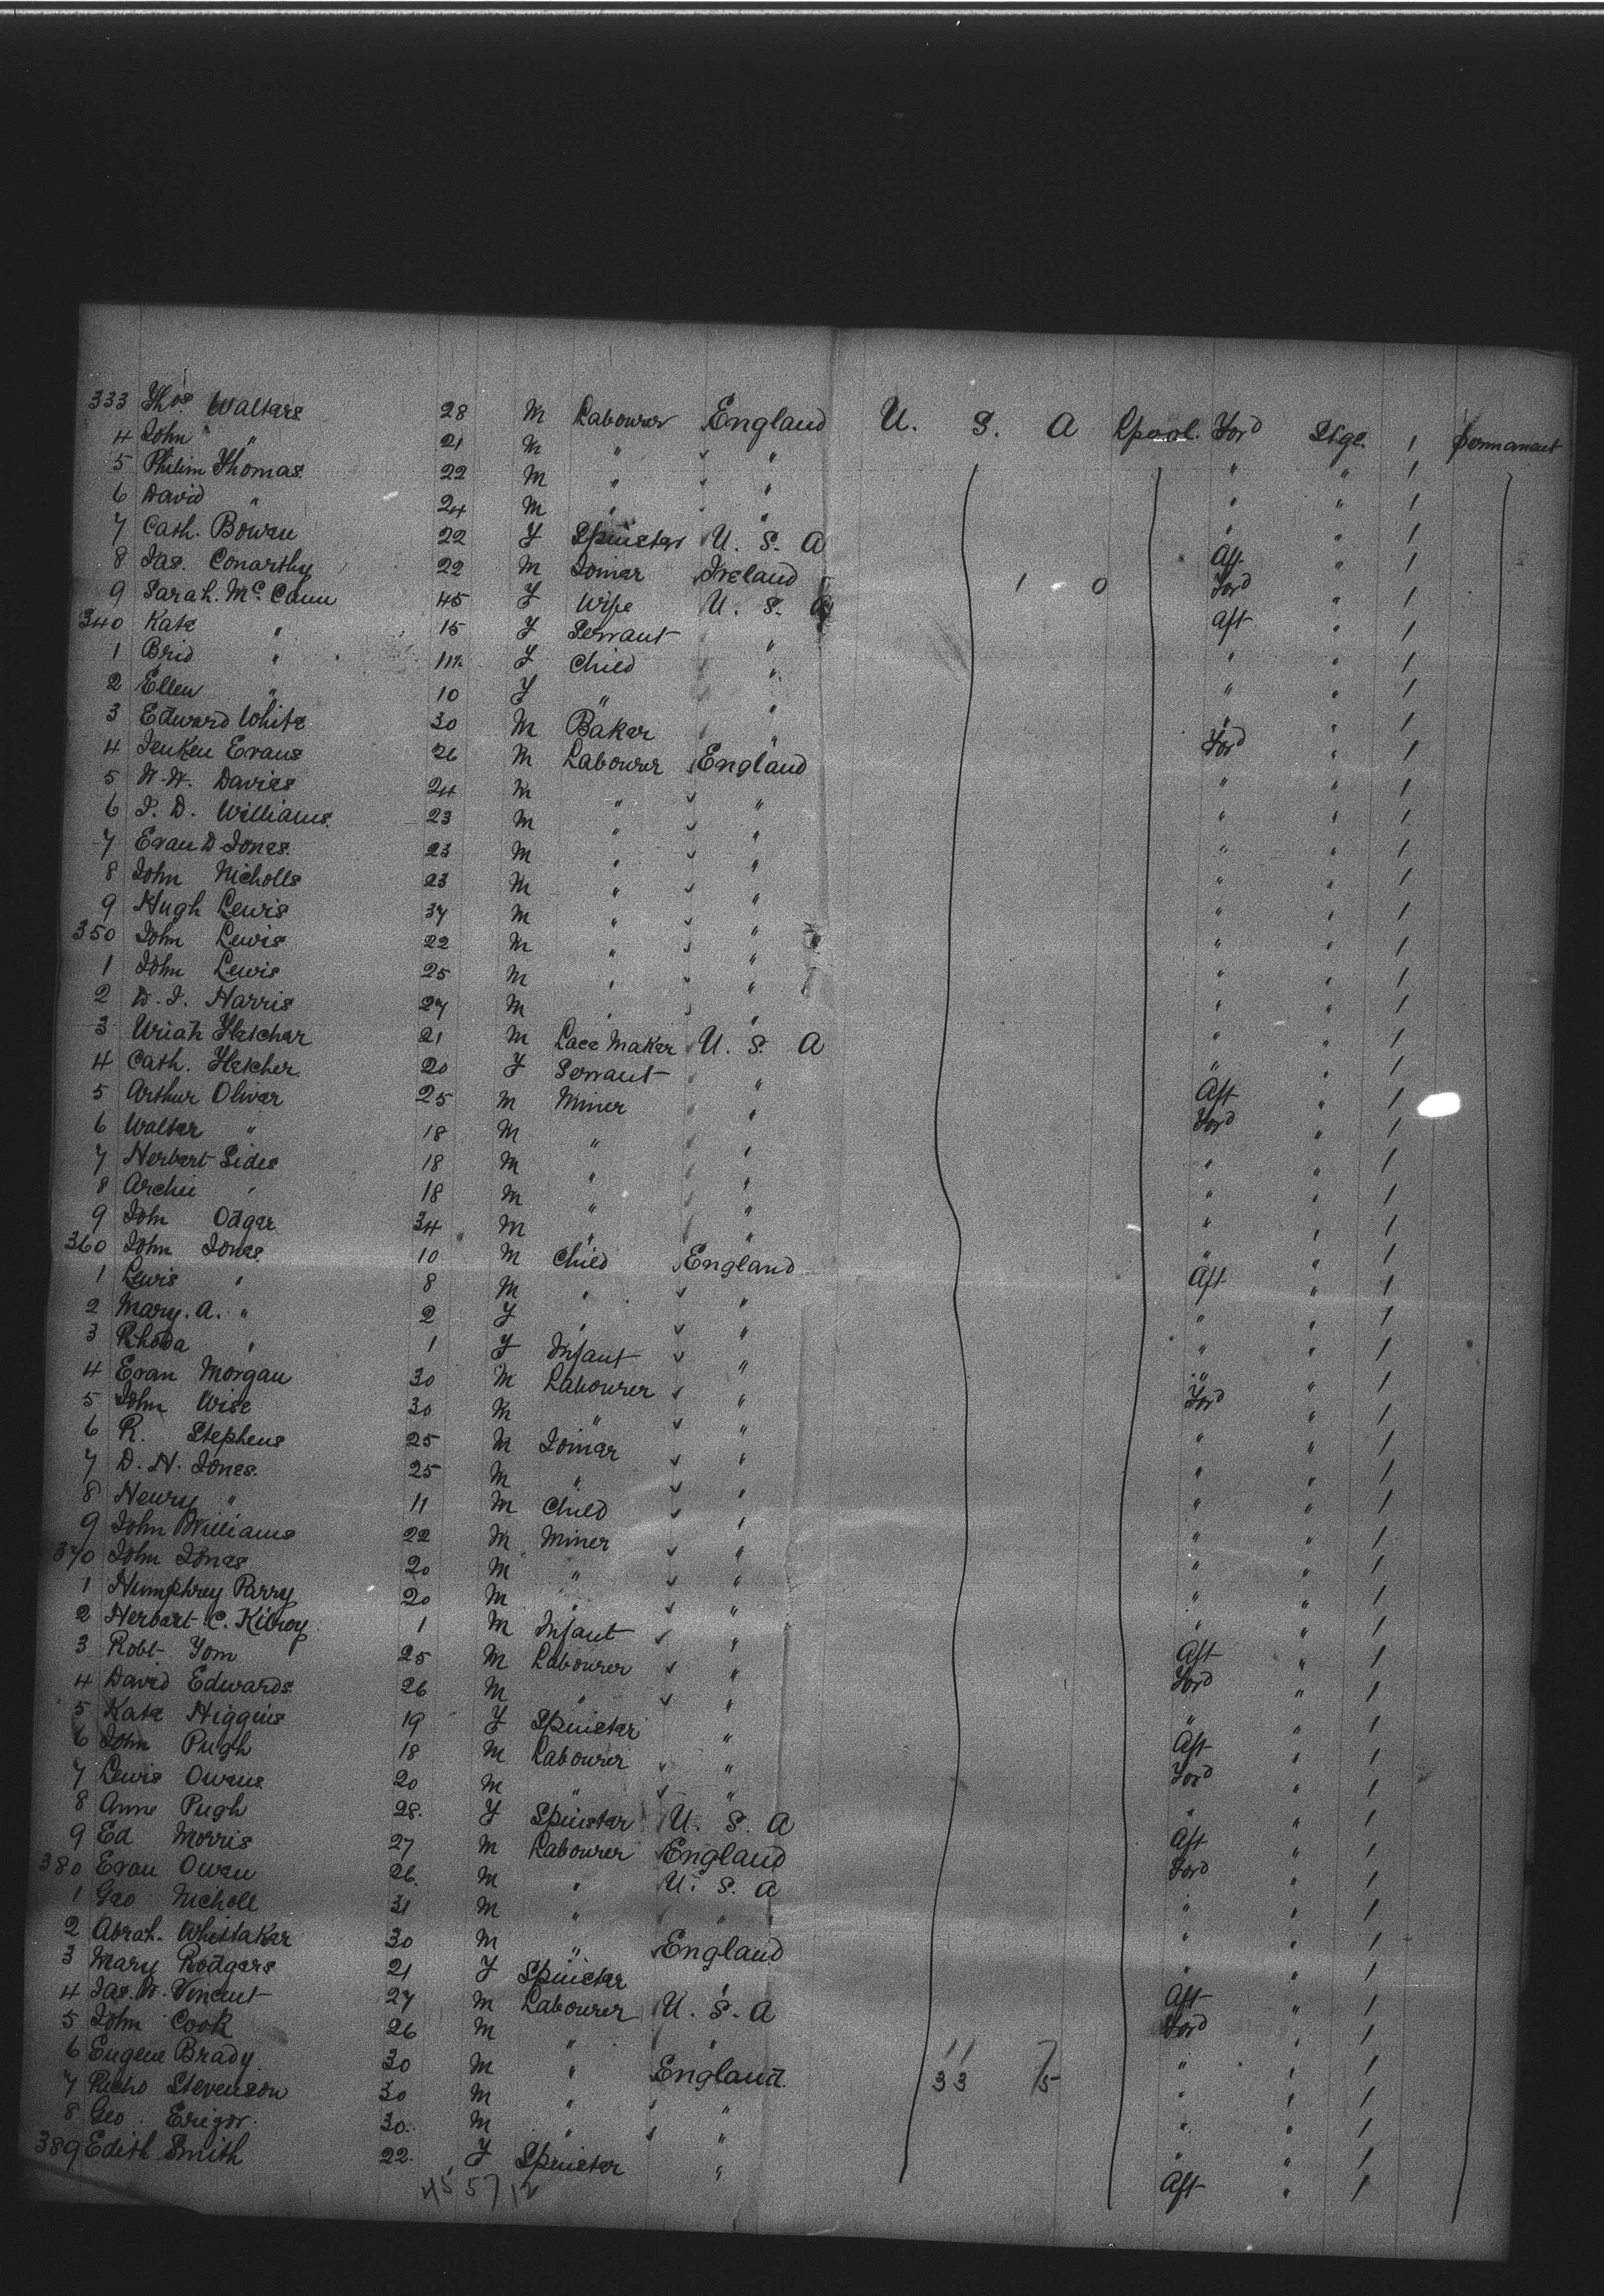 333 Thos. Walters 28 M Labourer England U. S. A Lpool. Ford Stge. 1 permanent
4 John " 21 M " " " " 1
5 Philim Thomas 22 M " " " " 1
6 David " 24 M " " " " 1
7 Cath. Bowen 22 F Spinster U. S. A Aft " 1
8 Jas. Conarthy 22 M Joiner Ireland 1 0 Ford " 1
9 Sarah. Mc. Cann 45 F Wife U. S. A Aft " 1
340 Kate " 15 F Servant " " " 1
1 Brid " 11 F Child " " " 1
2 Ellen " 10 F " " " " 1
3 Edward White 30 M Baker " Ford " 1
4 Jenken Evans 26 M Labourer England " " 1
5 W. W. Davies 24 M " " " " 1
6 J. D. Williams. 23 M " " " " 1
7 Evan D Jones. 23 M " " " " 1
8 John Nicholls 23 M " " " " 1
9 Hugh Lewis 37 M " " " " 1
350 John Lewis 22 M " " " " 1
1 John Lewis 25 M " " " " 1
2 D. J. Harris 27 M " " " " 1
3 Uriah Fletcher 21 M Lace Maker U. S. A " " 1
4 Cath. Fletcher 20 F Servant " Aft " 1
5 Arthur Oliver 25 M Miner " Ford " 1
6 Walter " 18 M " " " " 1
7 Herbert Sides 18 M " " " " 1
8 Archie " 18 M " " " " 1
9 John Odger 34 M " " " " 1
360 John Jones 10 M Child England Aft " 1
1 Lewis " 8 M " " " " 1
2 Mary. A. " 2 F " " " " 1
3 Rhoda " 1 F Infant " " " 1
4 Evan Morgan 30 M Labourer " Ford " 1
5 John Wise 30 M " " " " 1
6 R. Stephens 25 M Joiner " " " 1
7 D. H. Jones. 25 M " " " " 1
8 Henry " 11 M Child " " " 1
9 John Williams 22 M Miner " " " 1
370 John Jones 20 M " " " " 1
1 Humphrey Parry 20 M " " " " 1
2 Herbert C. Kilroy 1 M Infant " Aft " 1
3 Robt. Tom 25 M Labourer " Ford " 1
4 David Edwards 26 M " " " " 1
5 Kate Higgins 19 F Spinster " Aft " 1
6 John Pugh 18 M Labourer " Ford " 1
7 Lewis Owens 20 M " " " " 1
8 Anne Pugh 28. F Spinster U. S. A Aft " 1
9 Ed Morris 27 M Labourer England Ford " 1
380 Evan Owen 26. M " U. S. A " " 1
1 Geo Nicholl 31 M " " " " 1
2 Abrah. Whittaker 30 M " England " " 1
3 Mary Rodgers 21 F Spinster " Aft " 1
4 Jas. W. Vincent 27 M Labourer U. S. A Ford " 1
5 John Cook 26 M " " " " 1
6 Eugene Brady. 30 M " England. " " 1
7 Richd Stevenson 30 M " " " " 1
8 Geo. 30. M " " " " 1
389 Edith Smith 22. F Spinster " Aft " 1
11 7
33 5
45 57 12